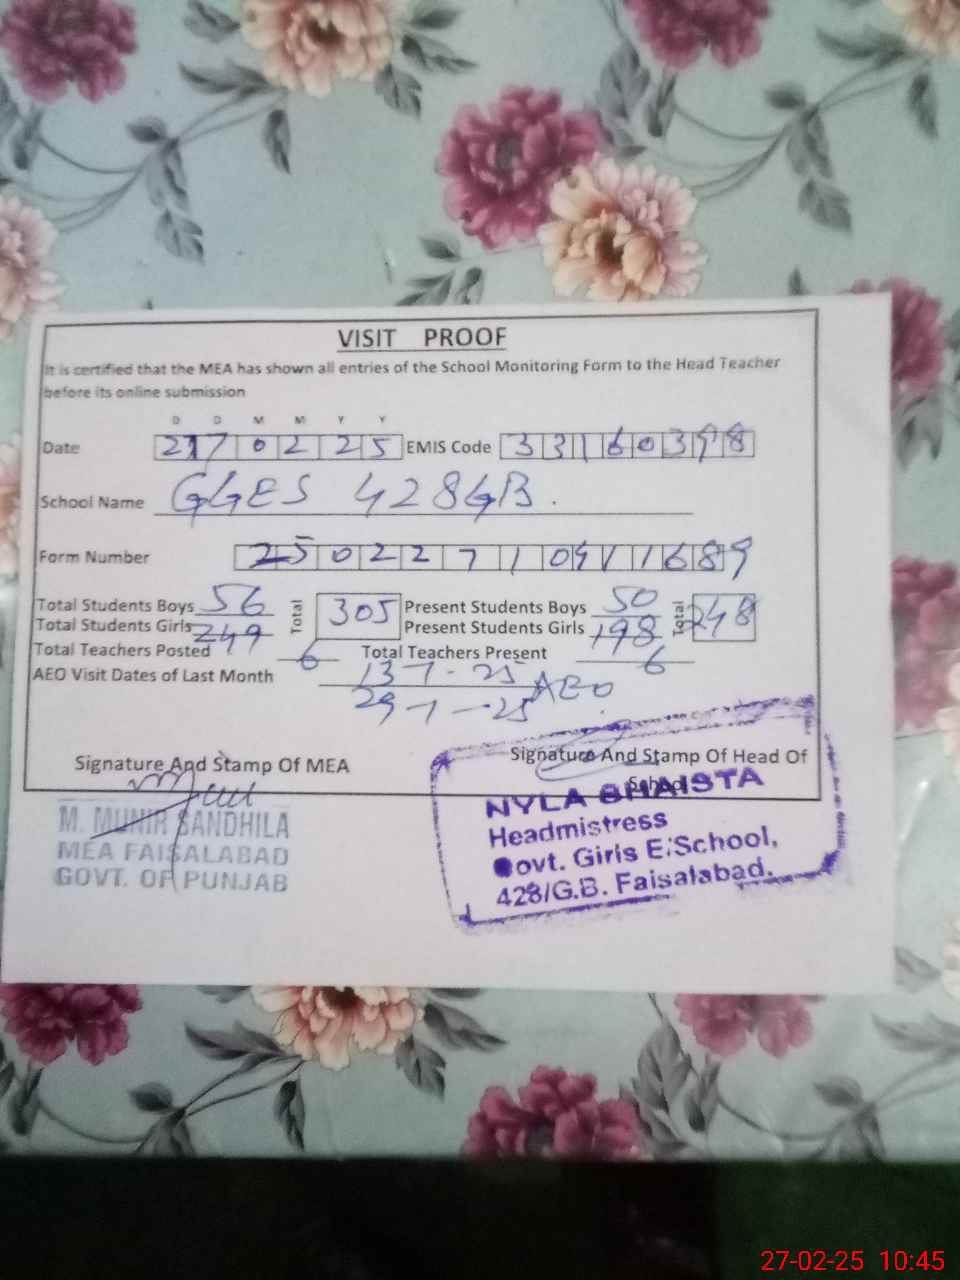 VISIT PROOF
It is certified that the MEA has shown all entries of the School Monitoring Form to the Head Teacher
before its online submission
D D M M Y Y
Date 270225 EMIS Code 33160398
School Name GGES 428GB.
Form Number
Total Students Boys 56 Total 305 Present Students Boys 50 Total 248
Total Students Girls 249 Present Students Girls 198
Total Teachers Posted 6 Total Teachers Present 6
AEO Visit Dates of Last Month 13-1-25 AEO
29-1-25
Signature And Stamp Of MEA Signature And Stamp Of Head Of
School
M. MUNIR SANDHILA
MEA FAISALABAD
GOVT. OF PUNJAB
NYLA SHAISTA
Headmistress
Govt. Girls E.School,
428/G.B. Faisalabad.
27-02-25 10:45